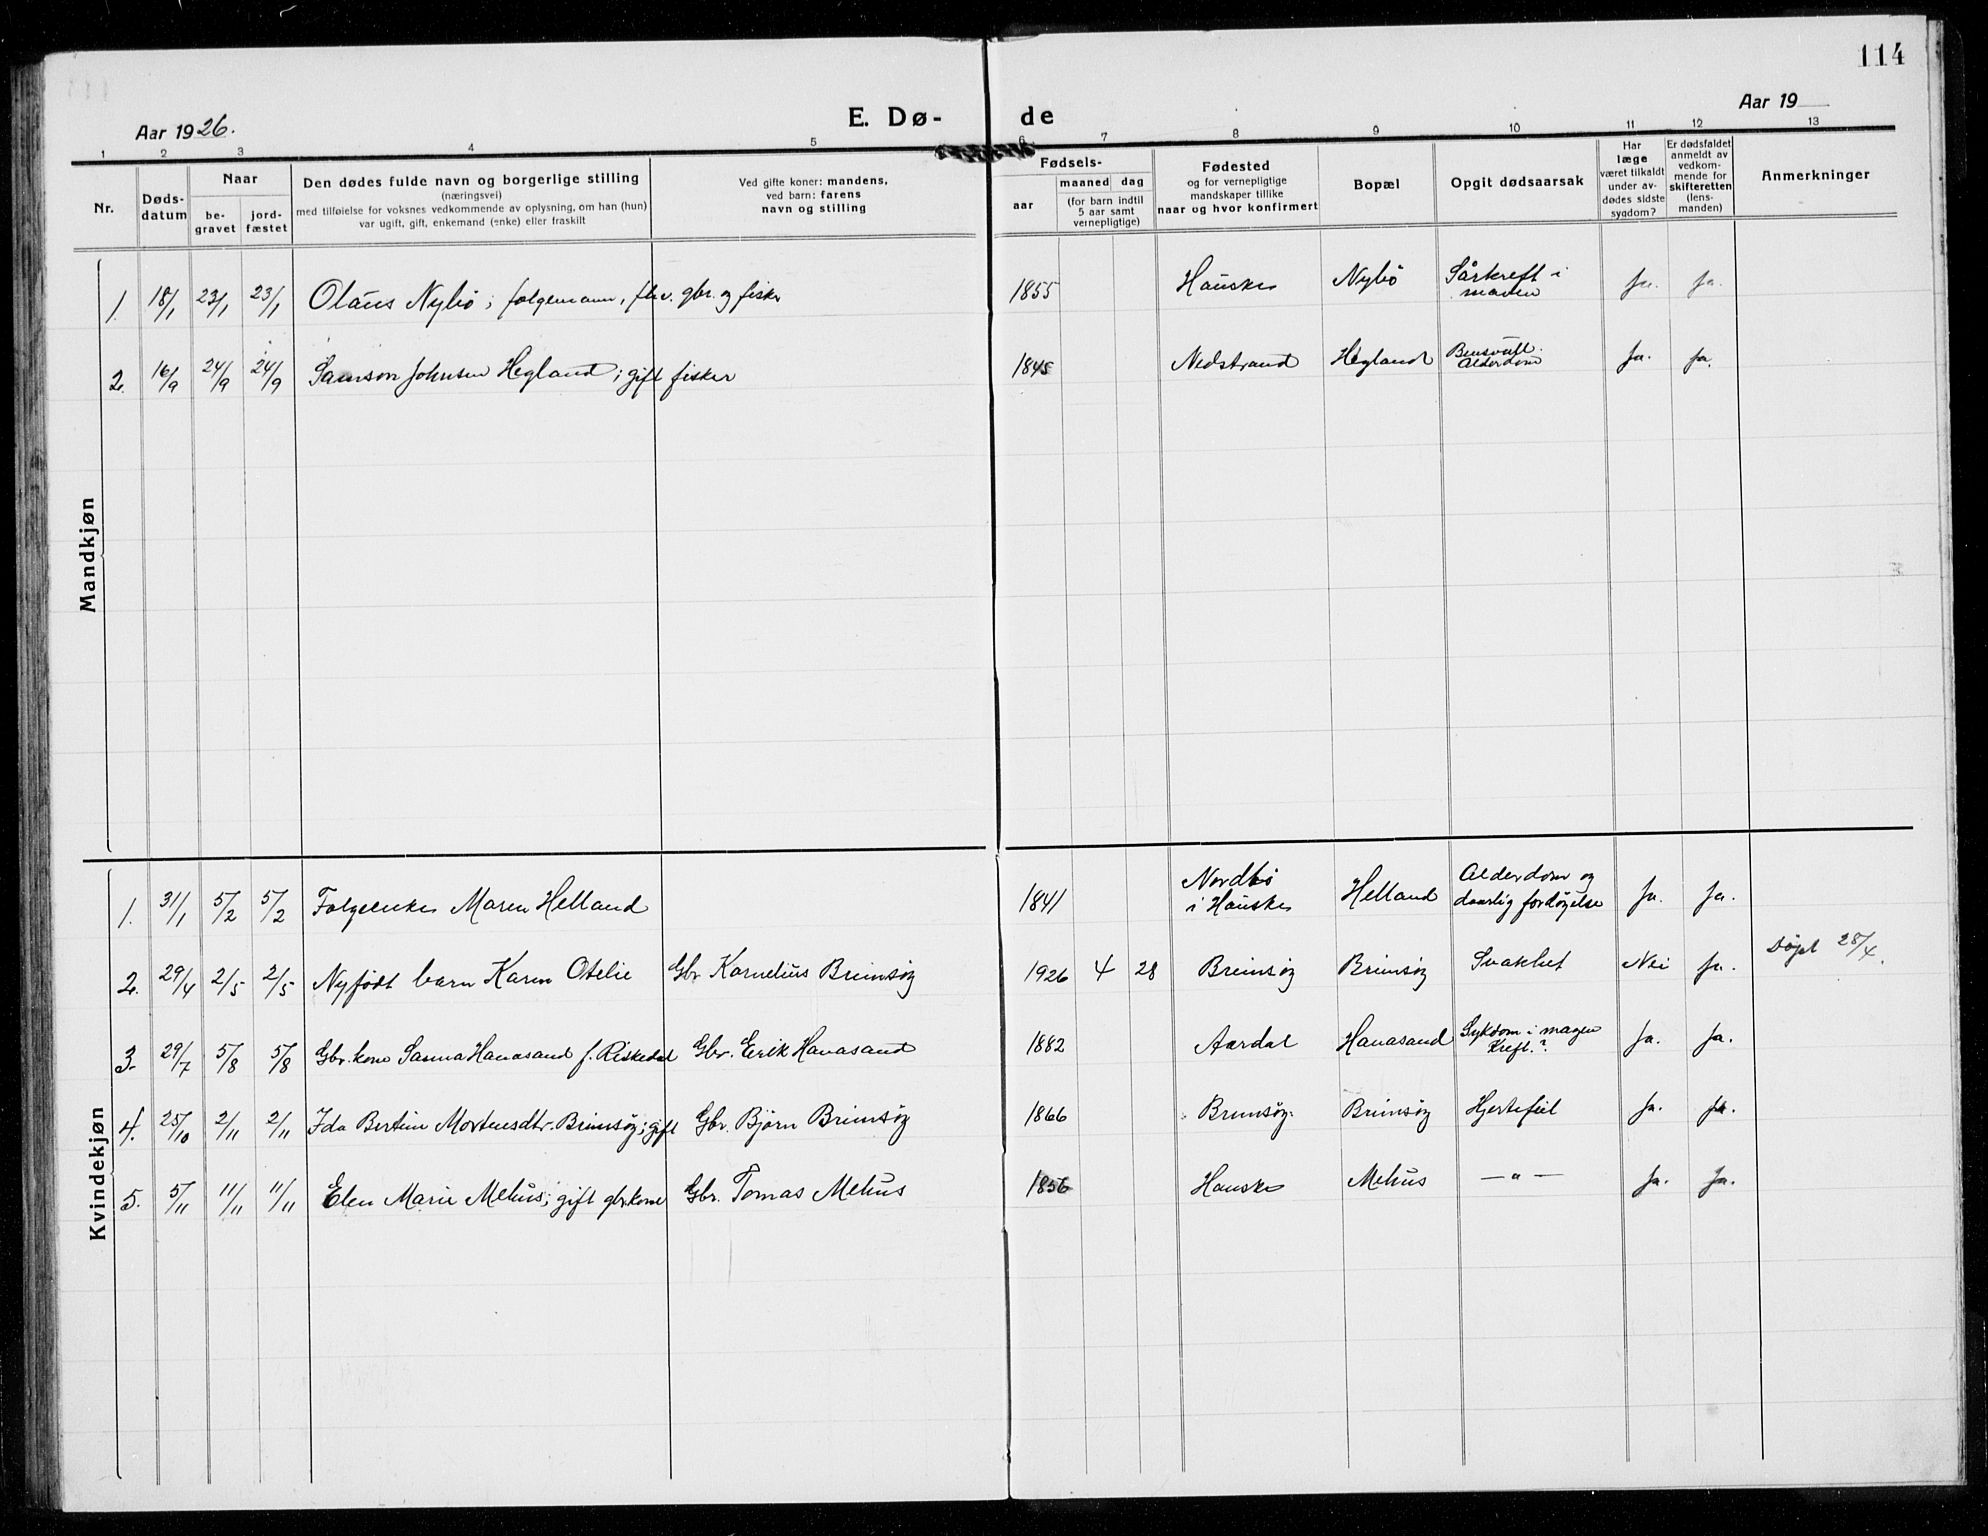 114
Aar 1926.
E. Dø-
de
Aar 19
1 2 3 4 5 6 7 8 9 10 11 12 13
Nr.
Døds-
datum
Naar
be-
gravet
jord-
fæstet
Den dødes fulde navn og borgerlige stilling
(næringsvei)
med tilføielse for voksnes vedkommende av oplysning, om han (hun)
var ugift, gift, enkemand (enke) eller fraskilt
Ved gifte koner: mandens,
ved barn: farens
navn og stilling
Fødsels-
aar
maaned dag
(for barn indtil
5 aar samt
vernepligtige)
Fødested
og for vernepligtige
mandskaper tillike
naar og hvor konfirmert
Bopæl
Opgit dødsaarsak
Har
læge
været tilkaldt
under av-
dødes sidste
sygdom?
Er dødsfaldet
anmeldt av
vedkom-
mende for
skifteretten
(lens-
manden)
Anmerkninger
Mandkjøn
1. 18/1 23/1 23/1 Olaus Nybö; folgemann, fhv. gbr. og fisker 1855 Hauske Nybö Sårkreft i maven Ja. Ja.
2. 16/9 24/9 24/9 Samson Johnsen Hegland; gift fisker 1845 Nedstrand Hegland Alderdom Ja. Ja.
Kvindekjøn
1. 31/1 5/2 5/2 Folgeenke Maren Helland 1841 Nordbö i Hauske Helland Alderdom og daarlig fordöyelse Ja. Ja.
2. 29/4 2/5 2/5 Nyfödt barn Karen Otelie Gbr. Kornelius Brimsöy 1926 4 28 Brimsöy Brimsöy Svakhet Nei Ja. Döpt 28/4.
3. 29/7 5/8 5/8 Gbr. kone Sanna Hanasand f. Riskedal Gbr. Eerik Hanasand 1882 Aardal Hanasand Sykdom i magen Kreft.? Ja. Ja.
4. 25/10 2/11 2/11 Ida Bertine Mortensdtr. Brimsöy; gift Gbr. Björn Brimsöy 1866 Brimsöy. Brimsöy Hjertefeil Ja. Ja.
5. 5/11 11/11 11/11 Elen Marie Mehus; gift gbr.kone Gbr. Tomas Mehus 1856 Hauske Mehus — " — Ja. Ja.